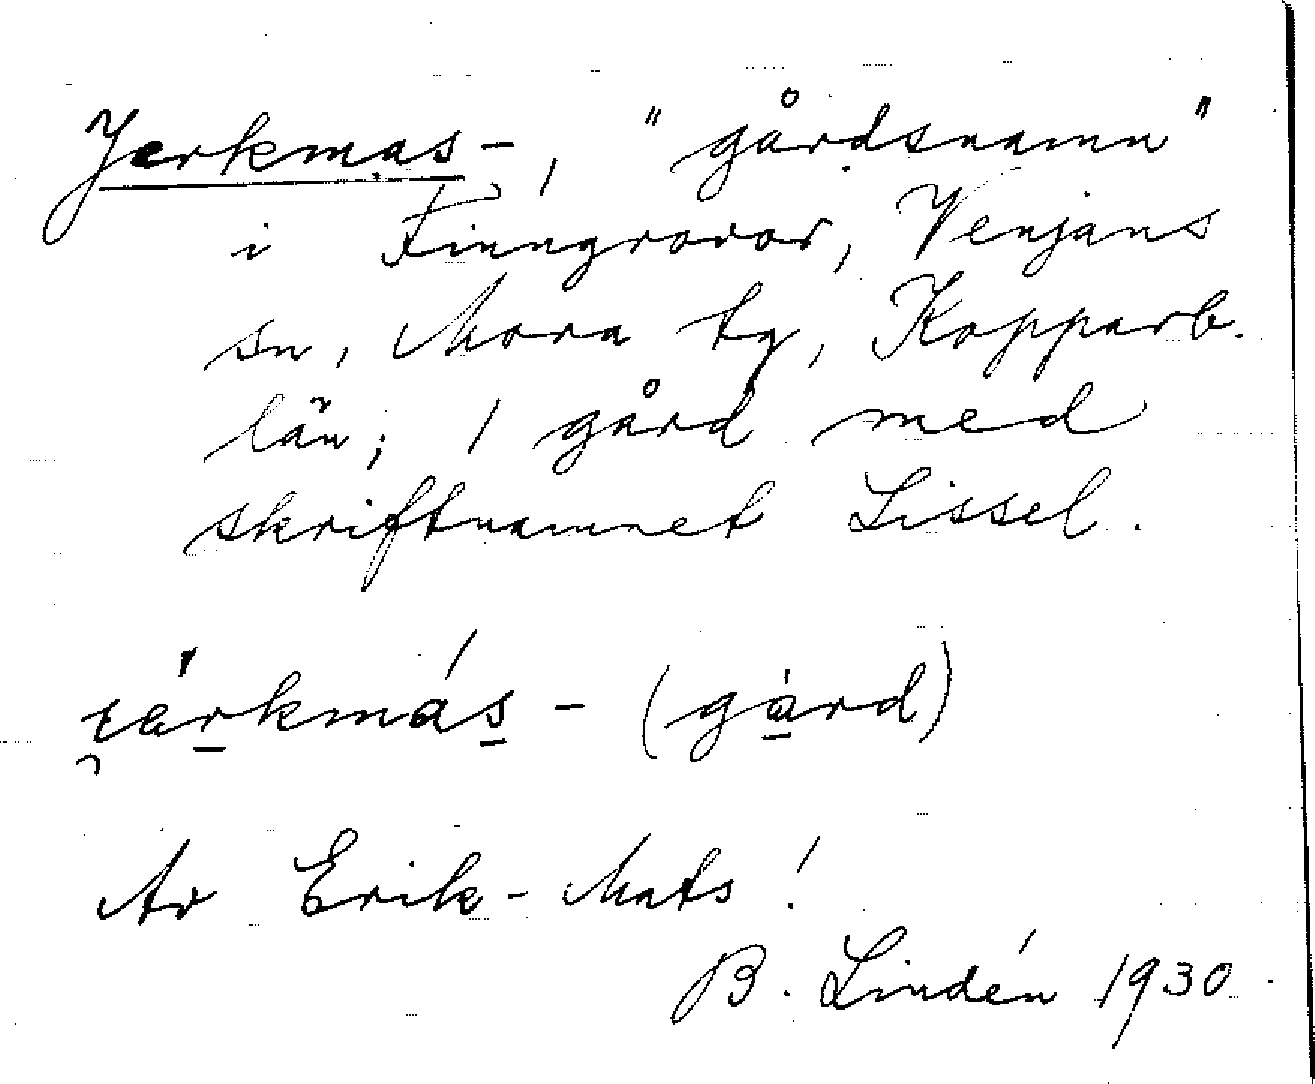 Jerkmas-, "gårdsnamn"
i Finngruvor, Venjans
sn, Mora tg, Kopparb.
län; 1 gård med
skriftnamnet Lissel.
- (gård)
Av Erik-Mats!
B. Lindén 1930